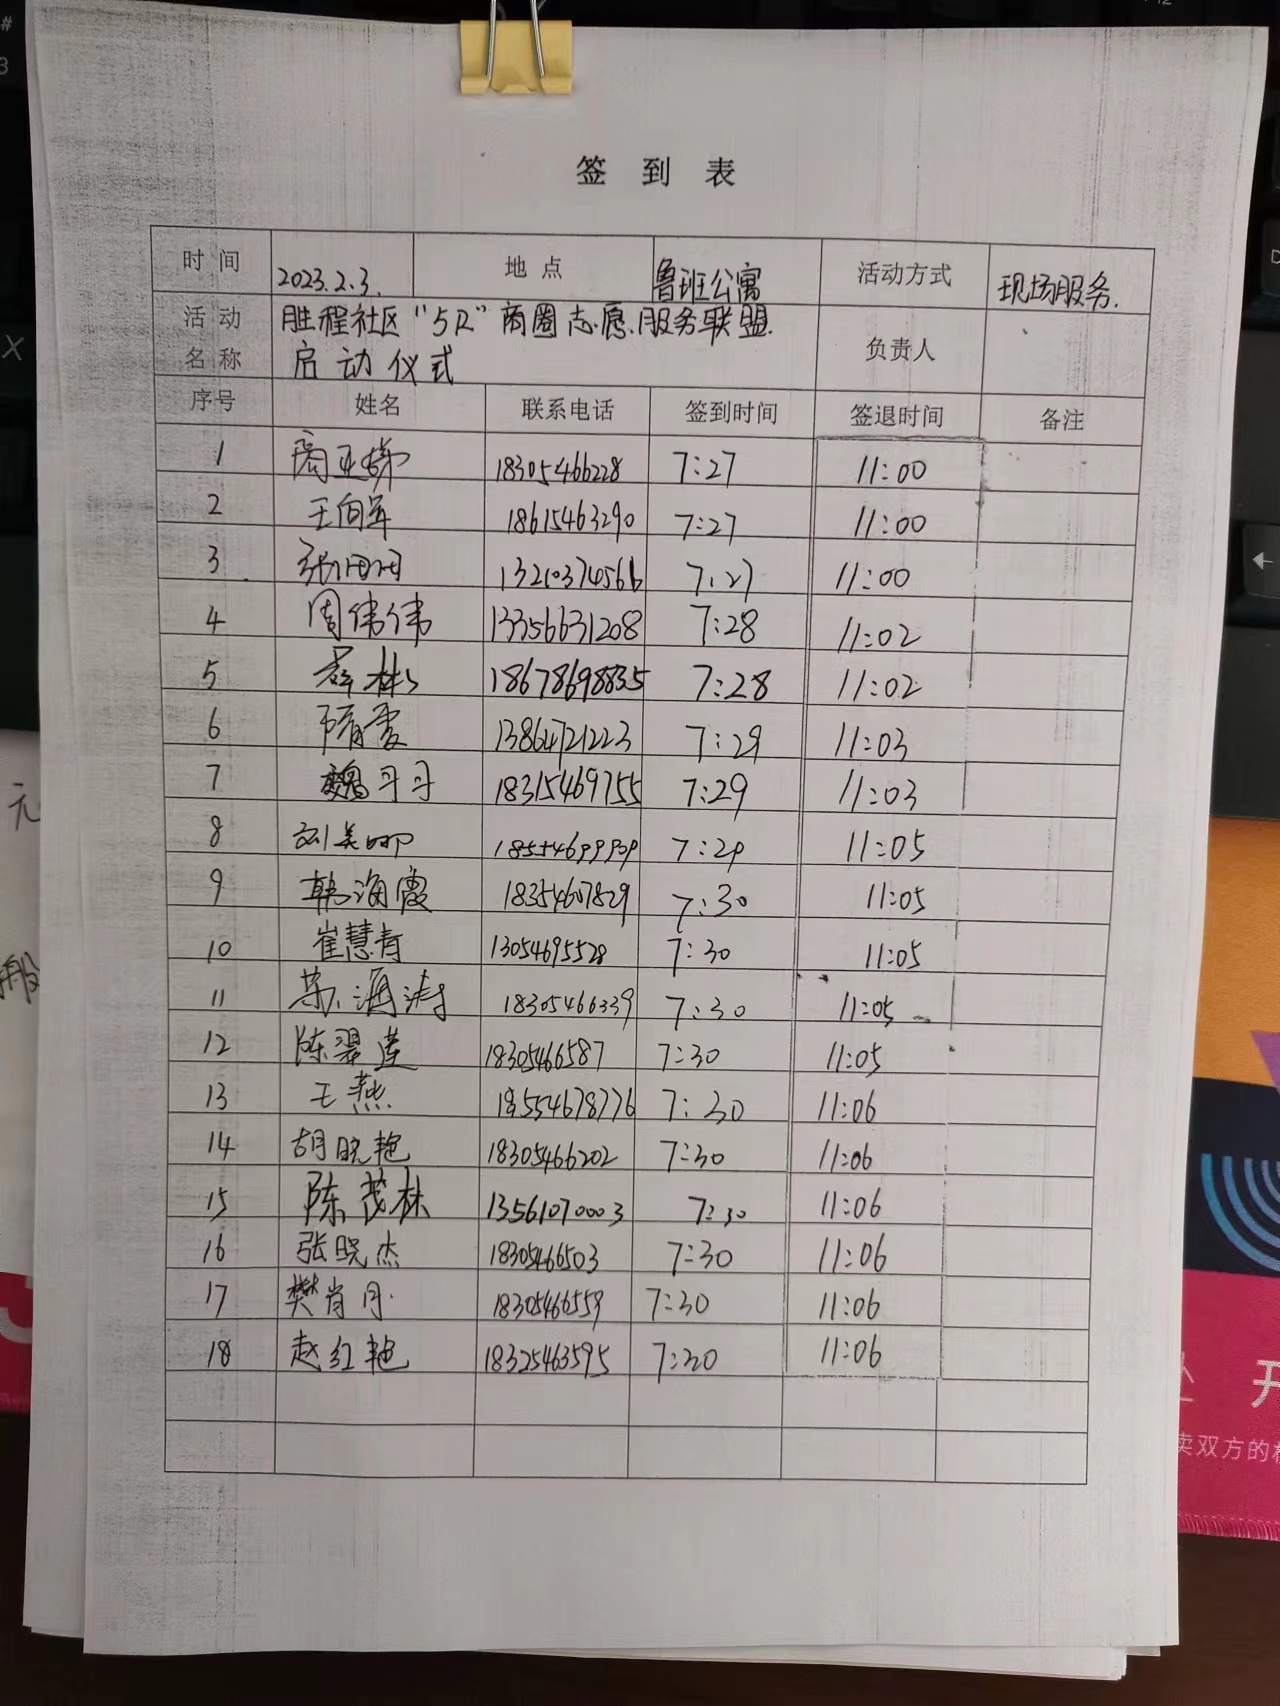 签 到 表
时 间 2023.2.3. 地 点 鲁班公寓 活动方式 现场服务.
活 动 名 称 胜程社区"5R"商圈志愿服务联盟. 负责人
启动仪式
序号 姓名 联系电话 签到时间 签退时间 备注
1 商亚娣 18305466228 7:27 11:00
2 王向军 18615463290 7:27 11:00
3 张田田 13210374566 7:27 11:00
4 周伟伟 13356631208 7:28 11:02
5 薛彬 18678698835 7:28 11:02
6 隋雯 13864721223 7:29 11:03
7 魏丹丹 18315469755 7:29 11:03
8 刘美娜 7:29 11:05
9 韩海霞 18354607829 7:30 11:05
10 崔慧青 13054695528 7:30 11:05
11 苏海涛 18305466339 7:30 11:05
12 陈翠莲 18305466587 7:30 11:05
13 王燕 18554678776 7:30 11:06
14 胡晓艳 18305466202 7:30 11:06
15 陈茂林 13561070003 7:30 11:06
16 张晓杰 18305466503 7:30 11:06
17 樊肖月 18305466559 7:30 11:06
18 赵红艳 18325463595 7:30 11:06
卖双方的